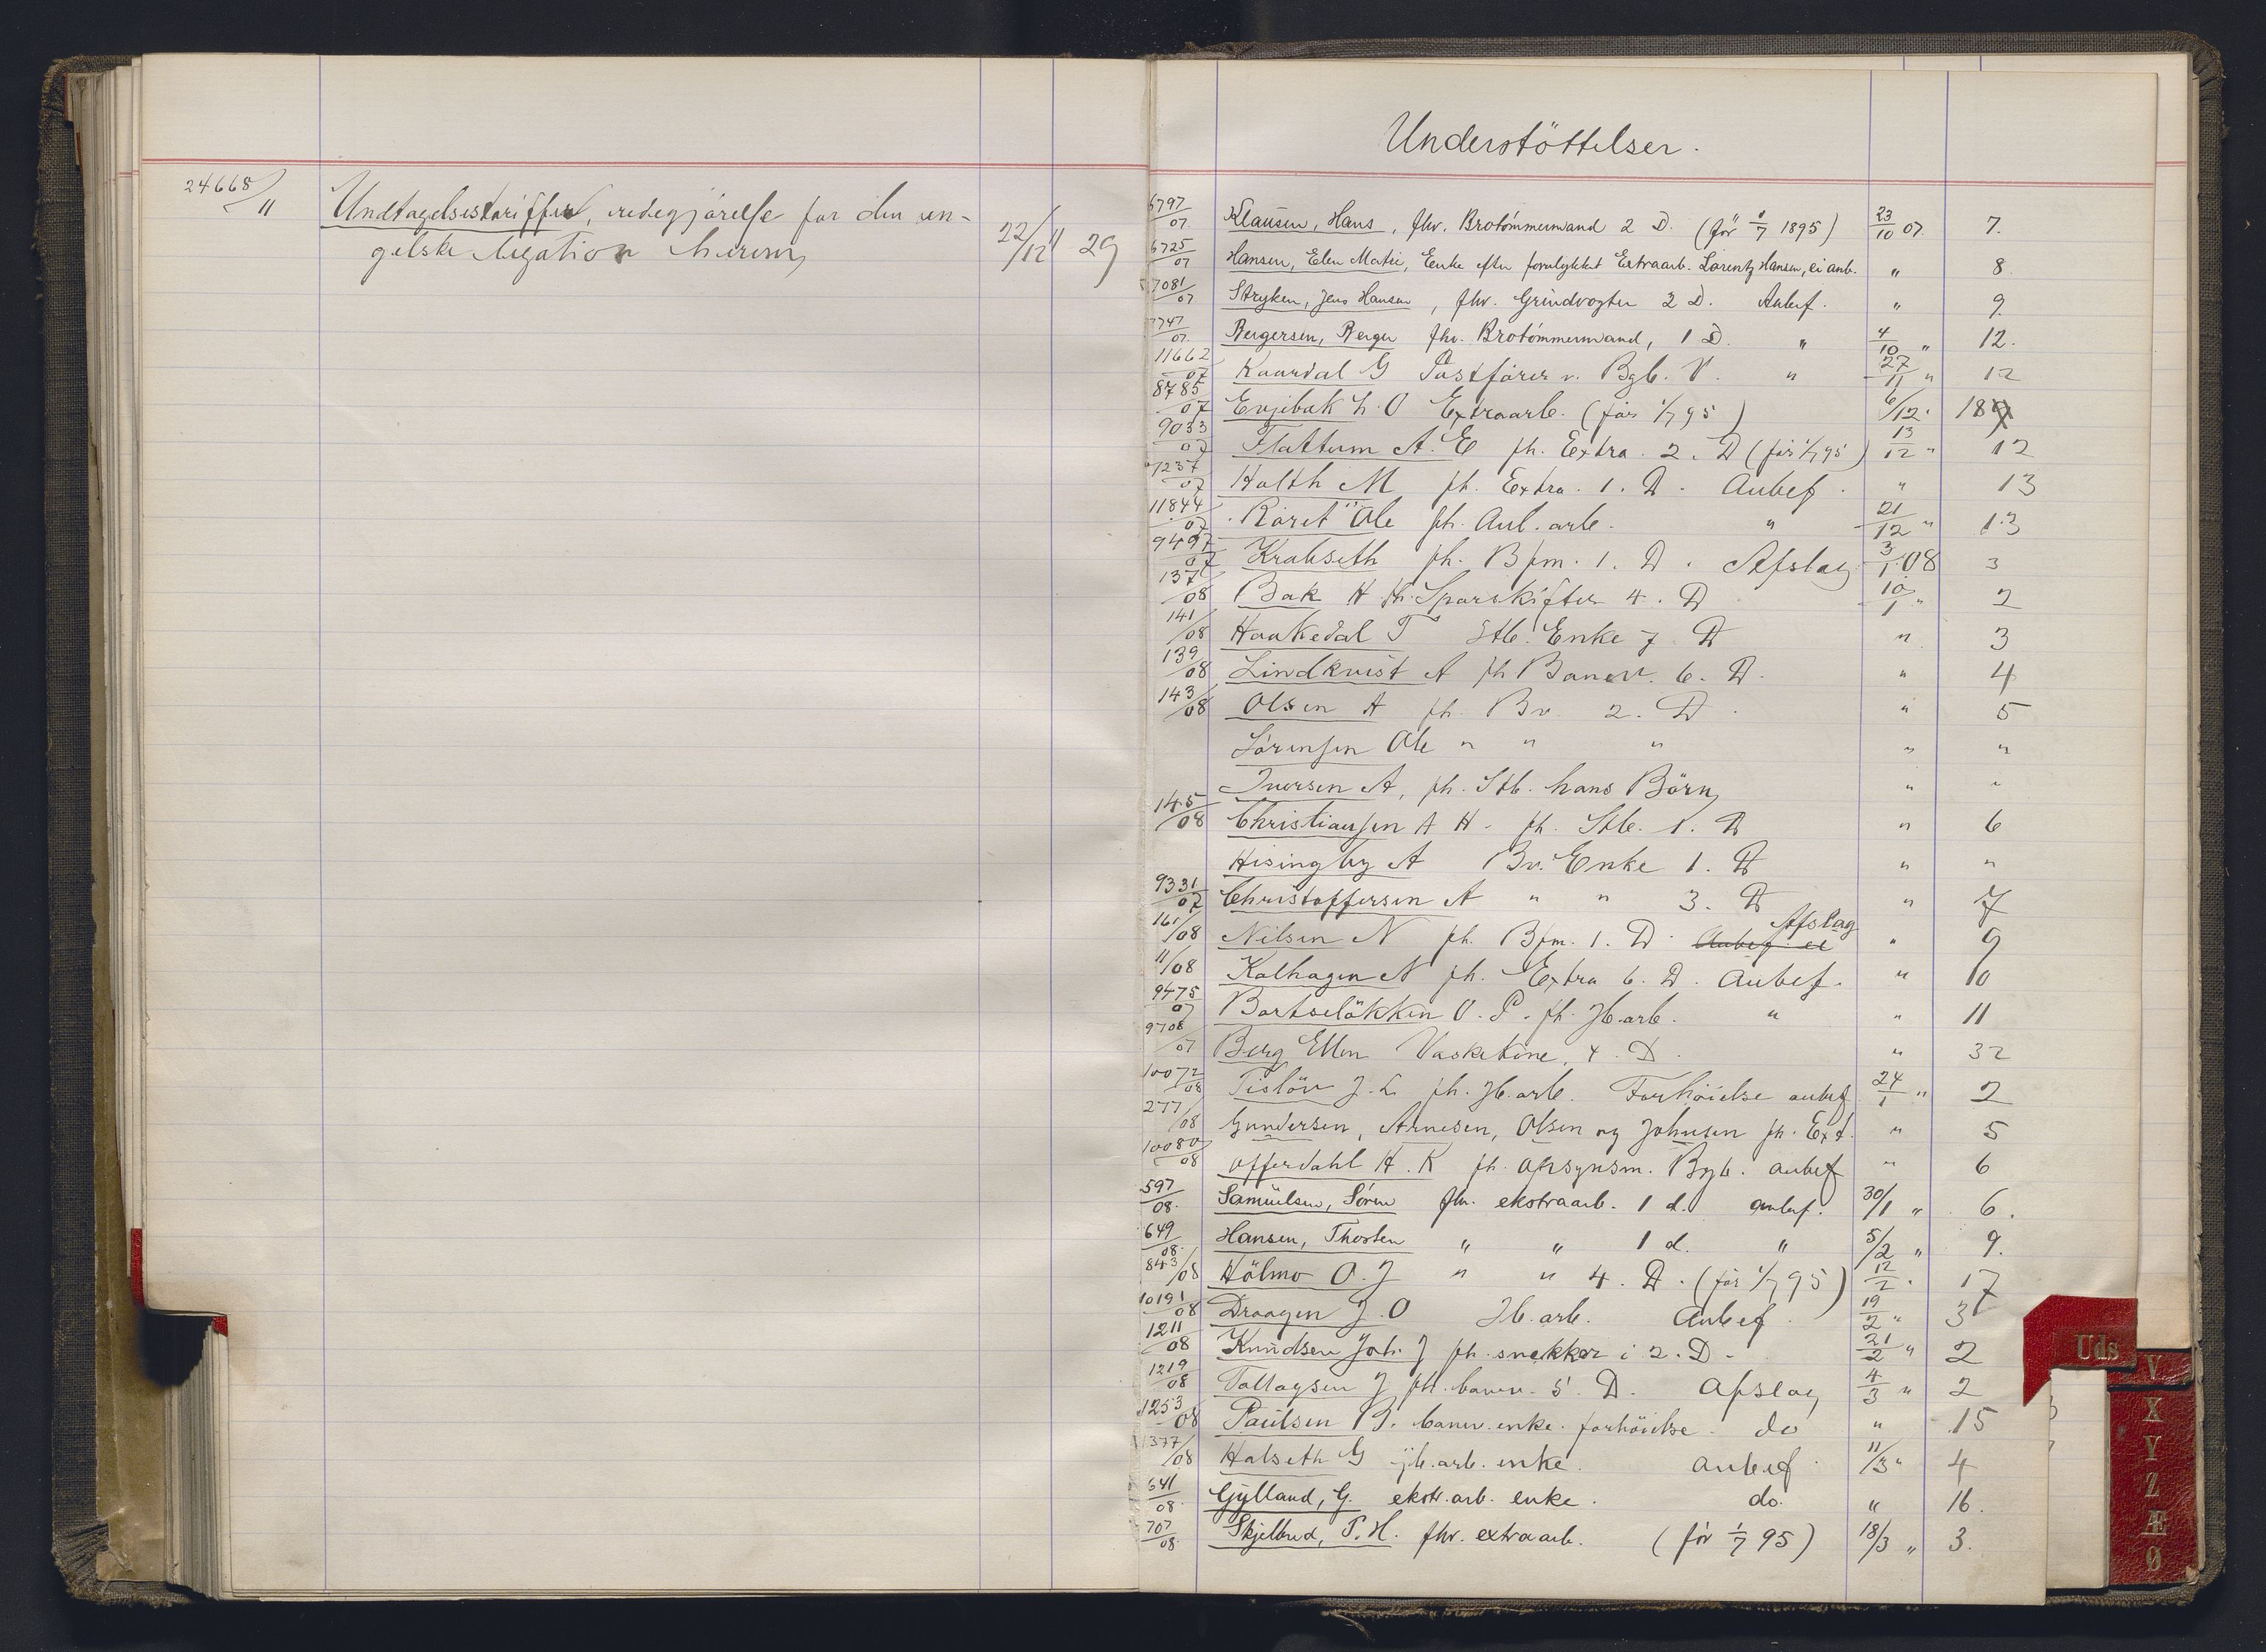 24668/11 Undtagelsestariffer, redegjörelse for den en- 22/12 11 29
gelske legation herom
Understöttelser.
6797/07 Klausen, Hans, fhv. Brotömmermand 2 D. (för 1/7 1895) 23/10 07. 7.
6725/07 Hansen, Elen Matie, Enke efter forulykket Extraarb. Lorentz Hansen, ei anb. " 8.
7081/07 Stryken, Jens Hansen, fhv. Grindvogter 2 D. Anbef. " 9.
7747/07 Bergersen, Berger fhv. Brotömmermand, 1 D. " 4/10 " 12.
11662/07 Kaardal G Postförer v. Bgb. V. " 27/11 " 12
8785/07 Evjebak H. O Extraarb. (för 1/7 95) 6/12 " 18
9033/07 Flattum A. E fh. Extra. 2. D (för 1/7 95) 13/12 " 12
7237/07 Holth M fh. Extra. 1. D. Anbef. " 13
11844/07 Röret Ole fh. Anl. arb. " 21/12 " 13
9497/07 Krabseth fh. Bfm. 1. D. Afslag 3/1 08 3
137/08 Bak H fh. Sporskifter 4. D 10/1 " 2
141/08 Haukedal T Stb. Enke 7. D " 3
139/08 Lindkvist A fh Banev. 6. D. " 4
143/08 Olsen A fh. Bv. 2. D. " 5
Sörensen Ole " " " " "
Iversen A, fh. Stb. hans Börn " "
145/08 Christiansen A H. fh. Stb. 1. D " 6
Hisingby A Bv. Enke 1. D " "
9331/07 Christoffersen A " " 3. D " 7
Afslag
161/08 Nilsen N fh. Bfm. 1. D. Anbef. ei " 9
11/08 Kolhagen N fh. Extra 6. D. Anbef. " 10
9475/07 Bortselökken O. P. fh. Jb. arb. " " 11
9708/07 Berg Ellen Vaskekone, 4. D. " 32
10072/08 Tislöv J. L fh. Jb. arb. Forhöielse anbef 24/1 " 2
277/08 Gundersen, Arnesen, Olsen og Johnsen fh. Ext. " 5
10080/08 Offerdahl H. K fh. opsynsm. Bgb. anbef " 6
597/08. Samuelsen, Sören fhv. ekstraarb. 1 d. anbef. 30/1 " 6.
649/08. Hansen, Thorsten " " 1 d. " 5/2 " 9.
843/08 Hölmo O. J " " 4. D. (för 1/7 95) 12/2 " 17
10191/08 Draagen J. O Jb. arb. Anbef. 19/2 " 3
1211/08 Knudsen Joh. J fh. snekker i 2. D. 21/2 " 2
1219/08 Tollagsen J fh. banev. 5. D. Afslag 4/3 " 2
1253/08 Paulsen B. banev. enke. forhöielse. do " 15
1377/08 Holseth G jb. arb. enke. anbef 11/3 " 4
641/08. Gylland, G. ekstr. arb. enke. do. " 16.
707/08. Skjelbred, P. H. fhv. extraarb. (för 1/7 95) 18/3 " 3.
Uds
V
X
Y
Z
Æ
Ø